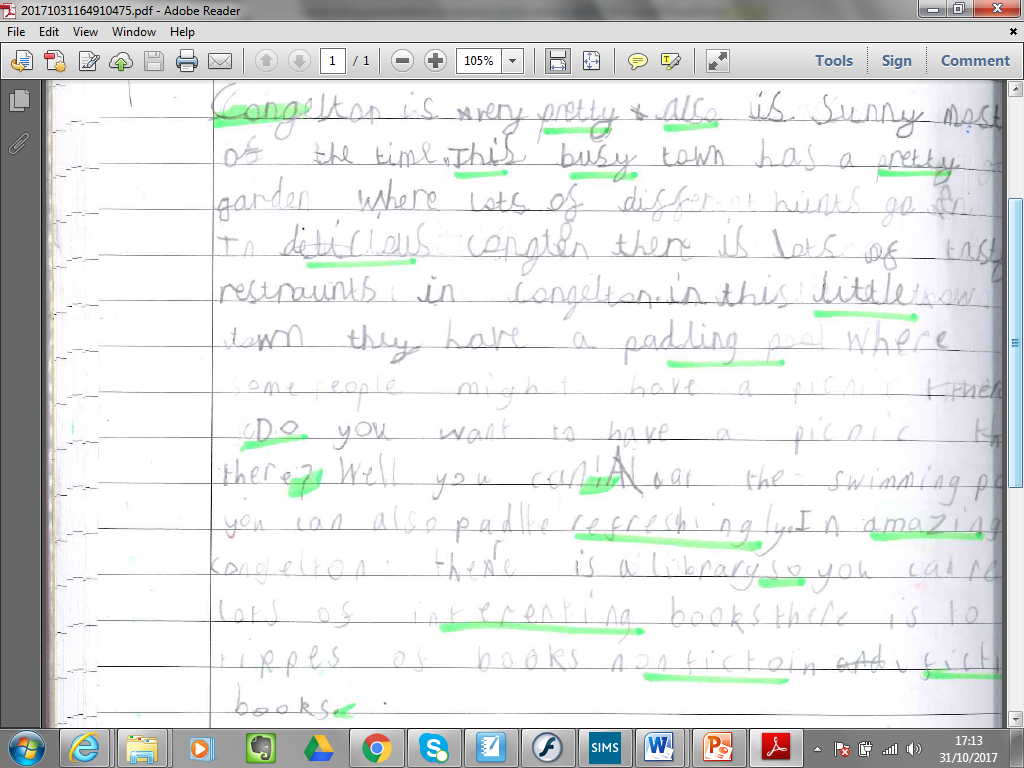 20171031164910475.pdf - Adobe Reader
File Edit View Window Help
1 / 1 105% Tools Sign Comment
Congelton is very pretty & also is Sunny most
of the time. This busy town has a pretty
garden where lots of different hunts go
In congton there is lots of tasty
restraunts in congelton. in this little town
town they have a padding pool where
some people might have a picnic there
Do you want to have a picnic th
there? Well you can! At at the swimming po
you can also padlle refreshingly. In amazing
congelton there is a library so you can re
lots of interenting books there is lo
tippes of books non fictoin and ficti
books.
SIMS
17:13
31/10/2017